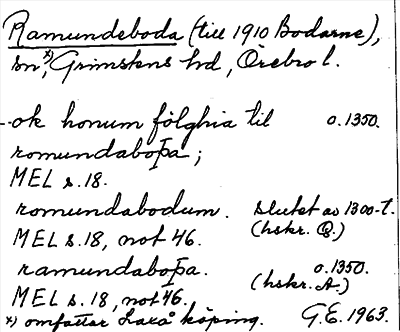 Ramundeboda (till 1910 Bodarne),
sn,x) Grimstens hd, Örebro l.
-ok honum fölghia til o.1350.
romundaboþa;
MEL s.18.
romundabodum. slutet av 1300-t.
MEL s.18, not 46. (hskr. Q.)
ramundaboþa. o.1350.
(hskr. A.)
MEL s.18, not 46.
x) omfattar Laxå köping. G.E. 1963.